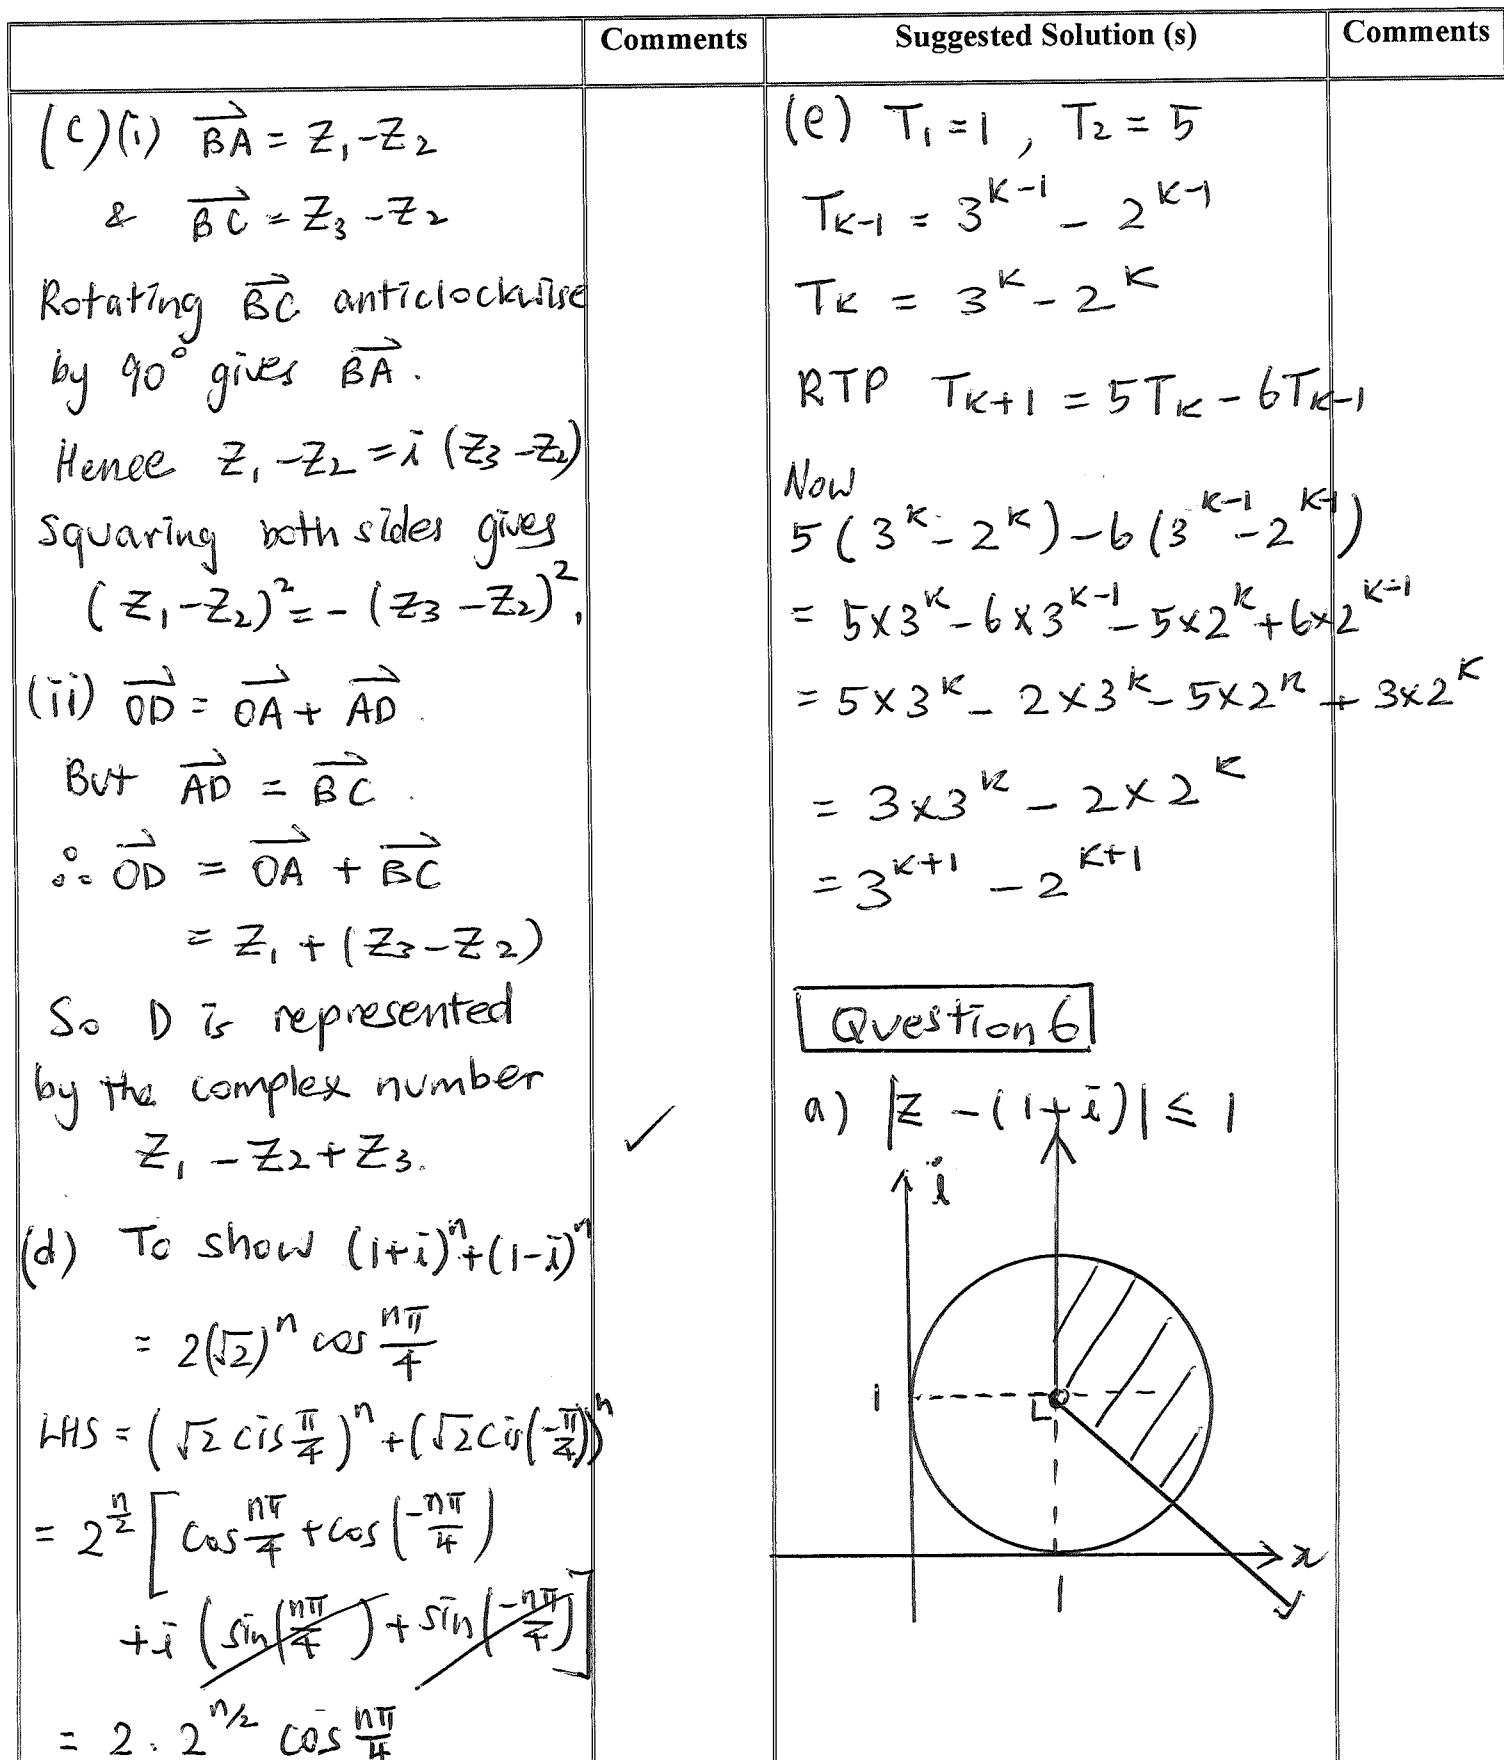 Comments
Suggested Solution (s)
Comments
(c)(i) BA = Z₁-Z₂
& BC = Z₃-Z₂
Rotating BC anticlockwise
by 90° gives BA.
Hence Z₁-Z₂ = i (Z₃-Z₂)
Squaring both sides gives
(Z₁-Z₂)² = -(Z₃-Z₂)²,
(ii) OD = OA + AD.
But AD = BC.
∴ OD = OA + BC
= Z₁ + (Z₃-Z₂)
So D is represented
by the complex number
Z₁ - Z₂ + Z₃.
✓
(d) To show (1+i)ⁿ+(1-i)ⁿ
= 2(√2)ⁿ cos nπ/4
LHS = (√2 cis π/4)ⁿ + (√2 cis(-π/4))ⁿ
= 2^(n/2) [cos nπ/4 + cos(-nπ/4)
+i (sin(nπ/4) + sin(-nπ/4)]
= 2 . 2^(n/2) cos nπ/4
(e) T₁ = 1, T₂ = 5
T_(K-1) = 3^(K-1) - 2^(K-1)
T_K = 3^K - 2^K
RTP T_(K+1) = 5T_K - 6T_(K-1)
Now
5(3^K - 2^K) - 6(3^(K-1) - 2^(K-1))
= 5×3^K - 6×3^(K-1) - 5×2^K + 6×2^(K-1)
= 5×3^K - 2×3^K - 5×2^K + 3×2^K
= 3×3^K - 2×2^K
= 3^(K+1) - 2^(K+1)
Question 6
a) |Z - (1+i)| ≤ 1
i
1
x
1